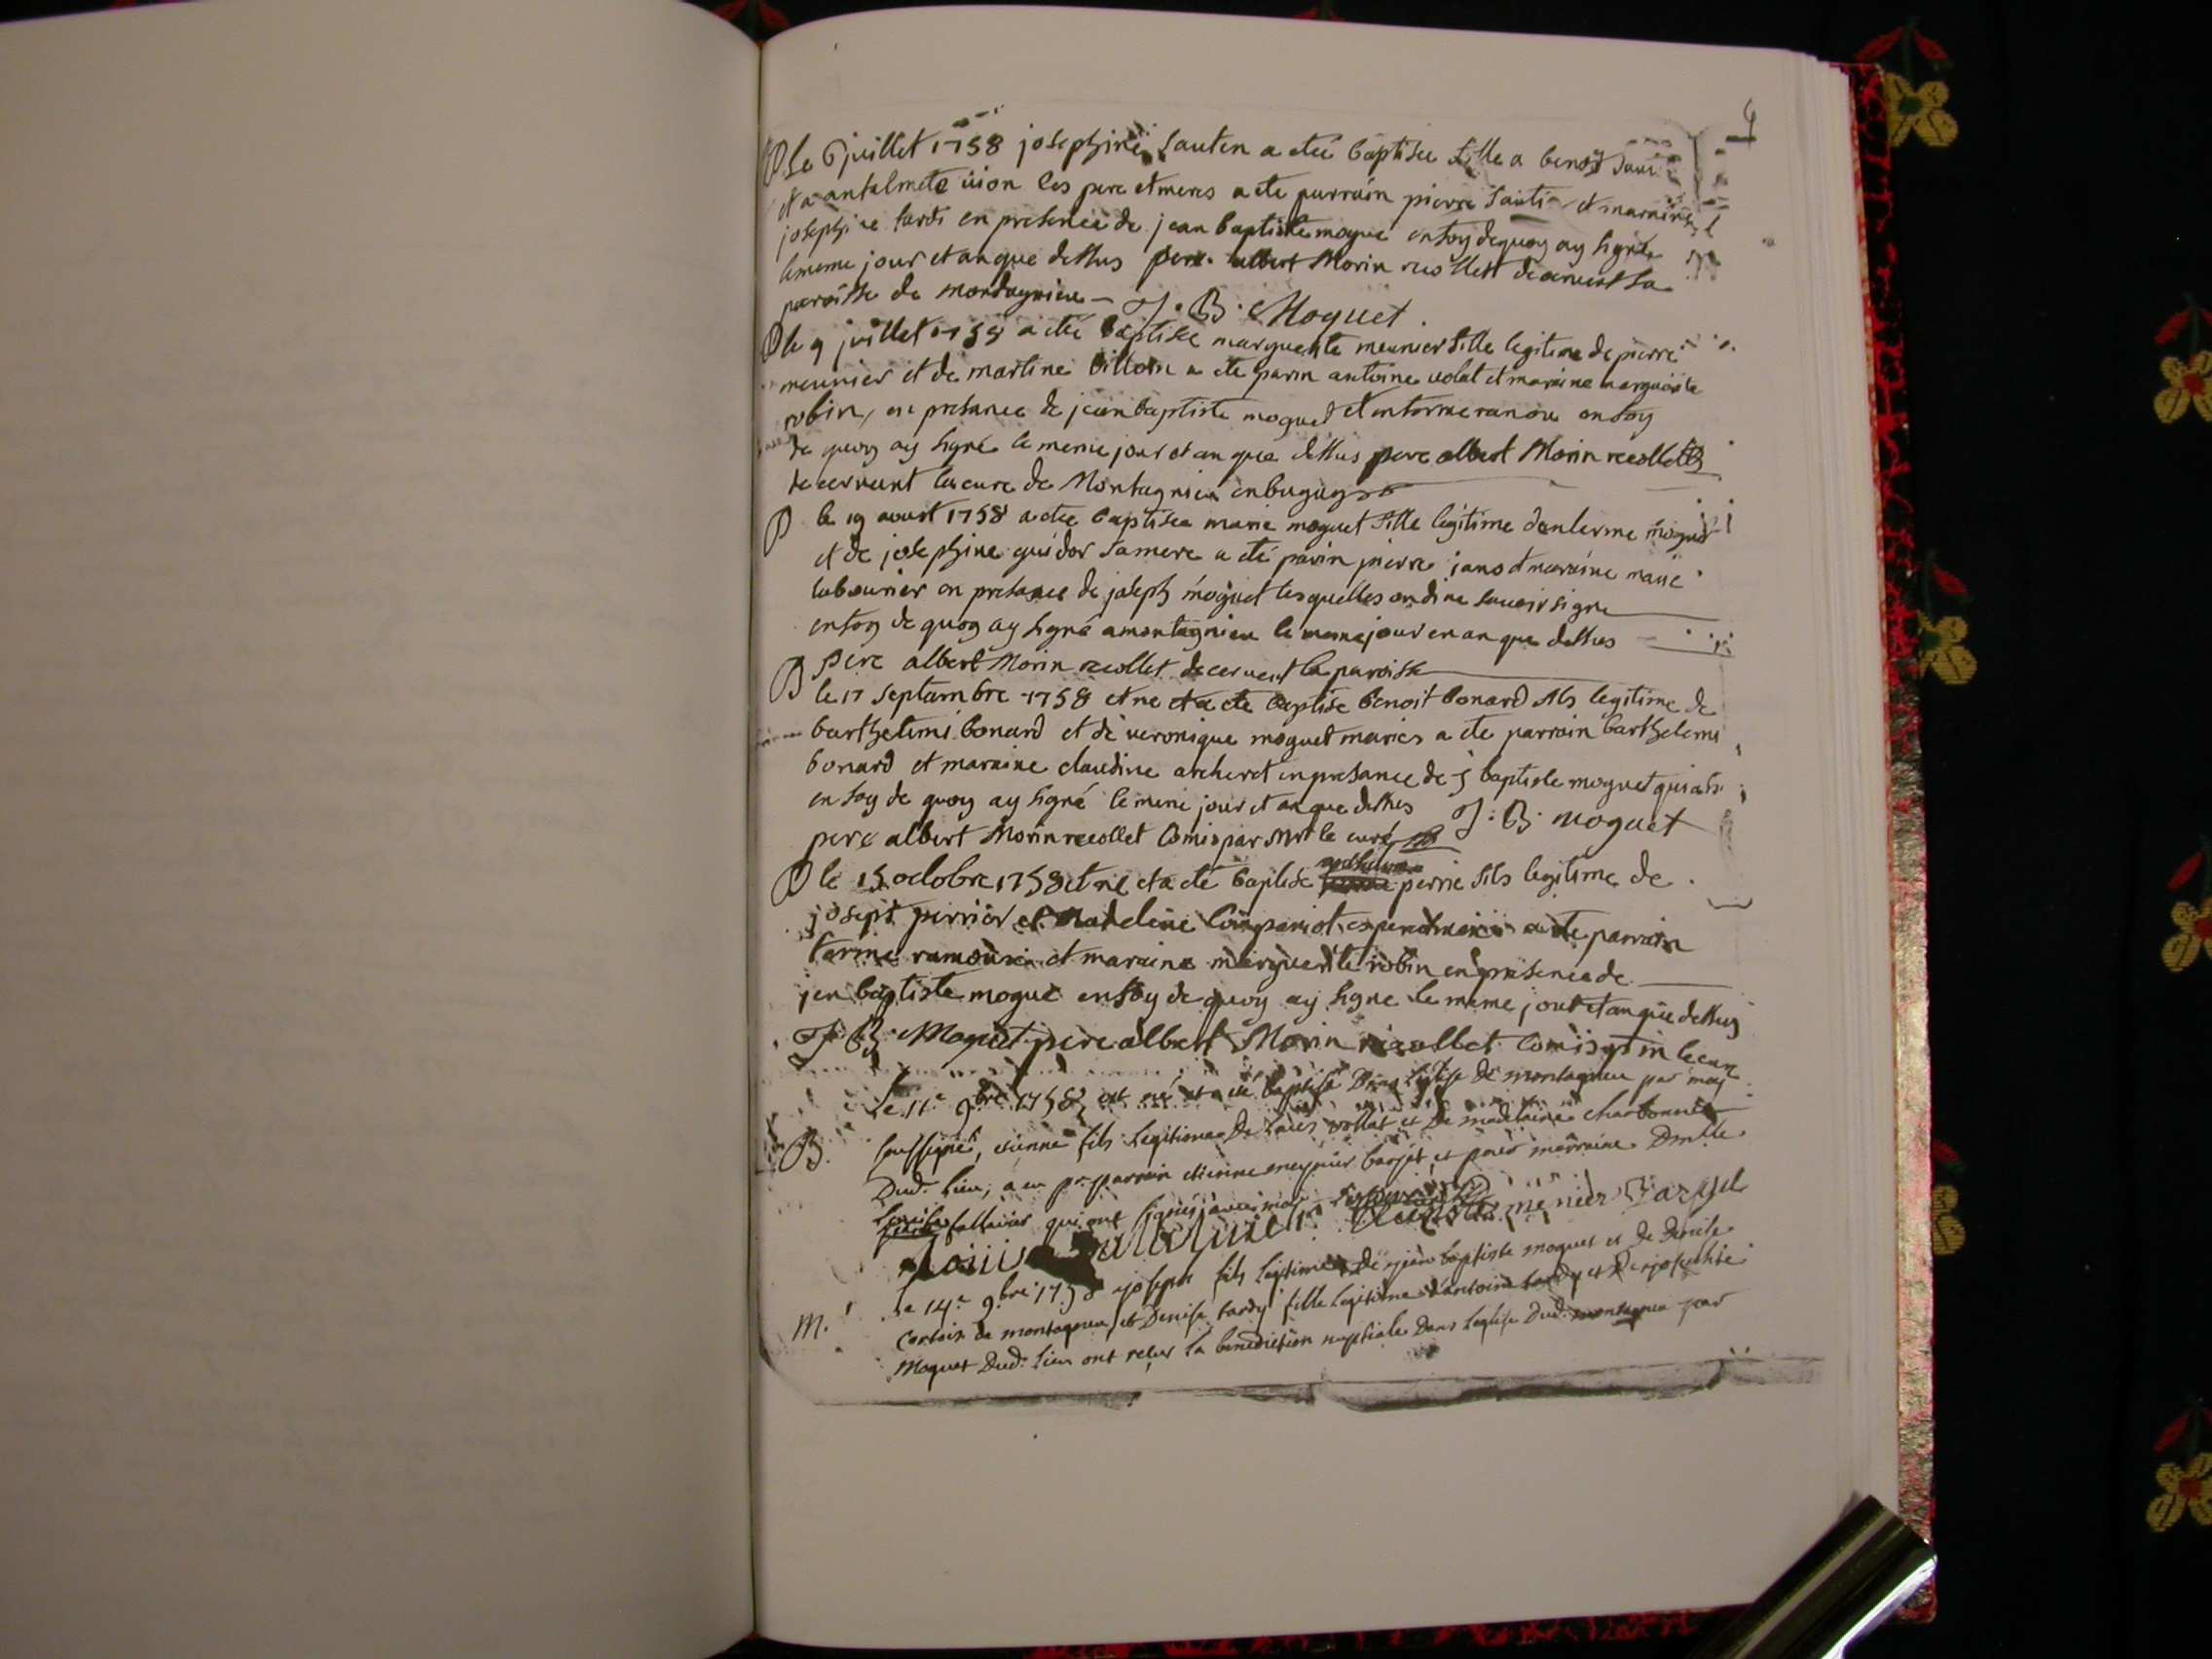 B le 6 juillet 1758 josephine sautin a eteé baptisee fille a benoy
et a les pere et meres a ete parrain pierre et maraine
josephine tardi en presence de jean baptiste moguè en foy de quoy ay signé
le meme jour et an que dessus pere albert Morin recollet decervent la
paroisse de montagnieu J. B. Moguet
B le 9 juillet 1758 a eteé baptisee marguerite meunier fille legitime de pierre
meunier et de martine billon a ete parin antoine volat et maraine marguerite
robin, en presance de jean baptiste moguet et en foy
de quoy ay signé le meme jour et an que dessus pere albert Morin recollet
decervent la cure de Montagnieu en bugey
B le 19 aoust 1758 a etee baptisee marie moguet fille legitime danterme moguet
et de josephine guidor sa mere a eté parin pierre janot maraine marie
labourier en presance de joseph moguet lesquelles on dine savoir signe
en foy de quoy ay signé a montagnieu le meme jour en an que dessus
pere albert Morin recollet decervent la paroisse
B le 17 septambre 1758 et ne et a ete baptise benoit bonard fils legitime de
barthelemi bonard et de veronique moguet maries a ete parrain barthelemi
bonard et maraine claudine archeret en presance de j baptiste moguet qui a si
en foy de quoy ay signé le meme jour et an que dessus J. B. moguet
pere albert Morin recollet comis par mr le curé
B le 15 octobre 1758 et ne et a eté baptise perrie fils legitime de
josept perrier et Madeleine Compariot a ete parrain
terme et maraine marguerite robin en presence de
jen baptiste moguè en foy de quoy ay signe le meme jour et an que dessus
J. B. Moguet pere albert Morin recollet comis
Le 11e 9bre 1758 est né et a été baptisé Dans l'église de montagneu par moy
B. soussigné, etienne fils legitime De Louis vollat et De madelaine charbonnet
Dud. lieu, a eu pr. parrain etienne meynier barjet, et pour marraine Dmlle
Louise fallavier qui ont signés avec moy
Louise menier Barget
M. Le 14e 9bre 1758 joseph fils legitime De jean baptiste moguet et de Denise
de montagneu, et Denise tardy fille legitime d'antoine tardy et De josephte
Moguet Dud. lieu ont reçus la benediction nuptiale Dans l'eglise Dud. montagneu par